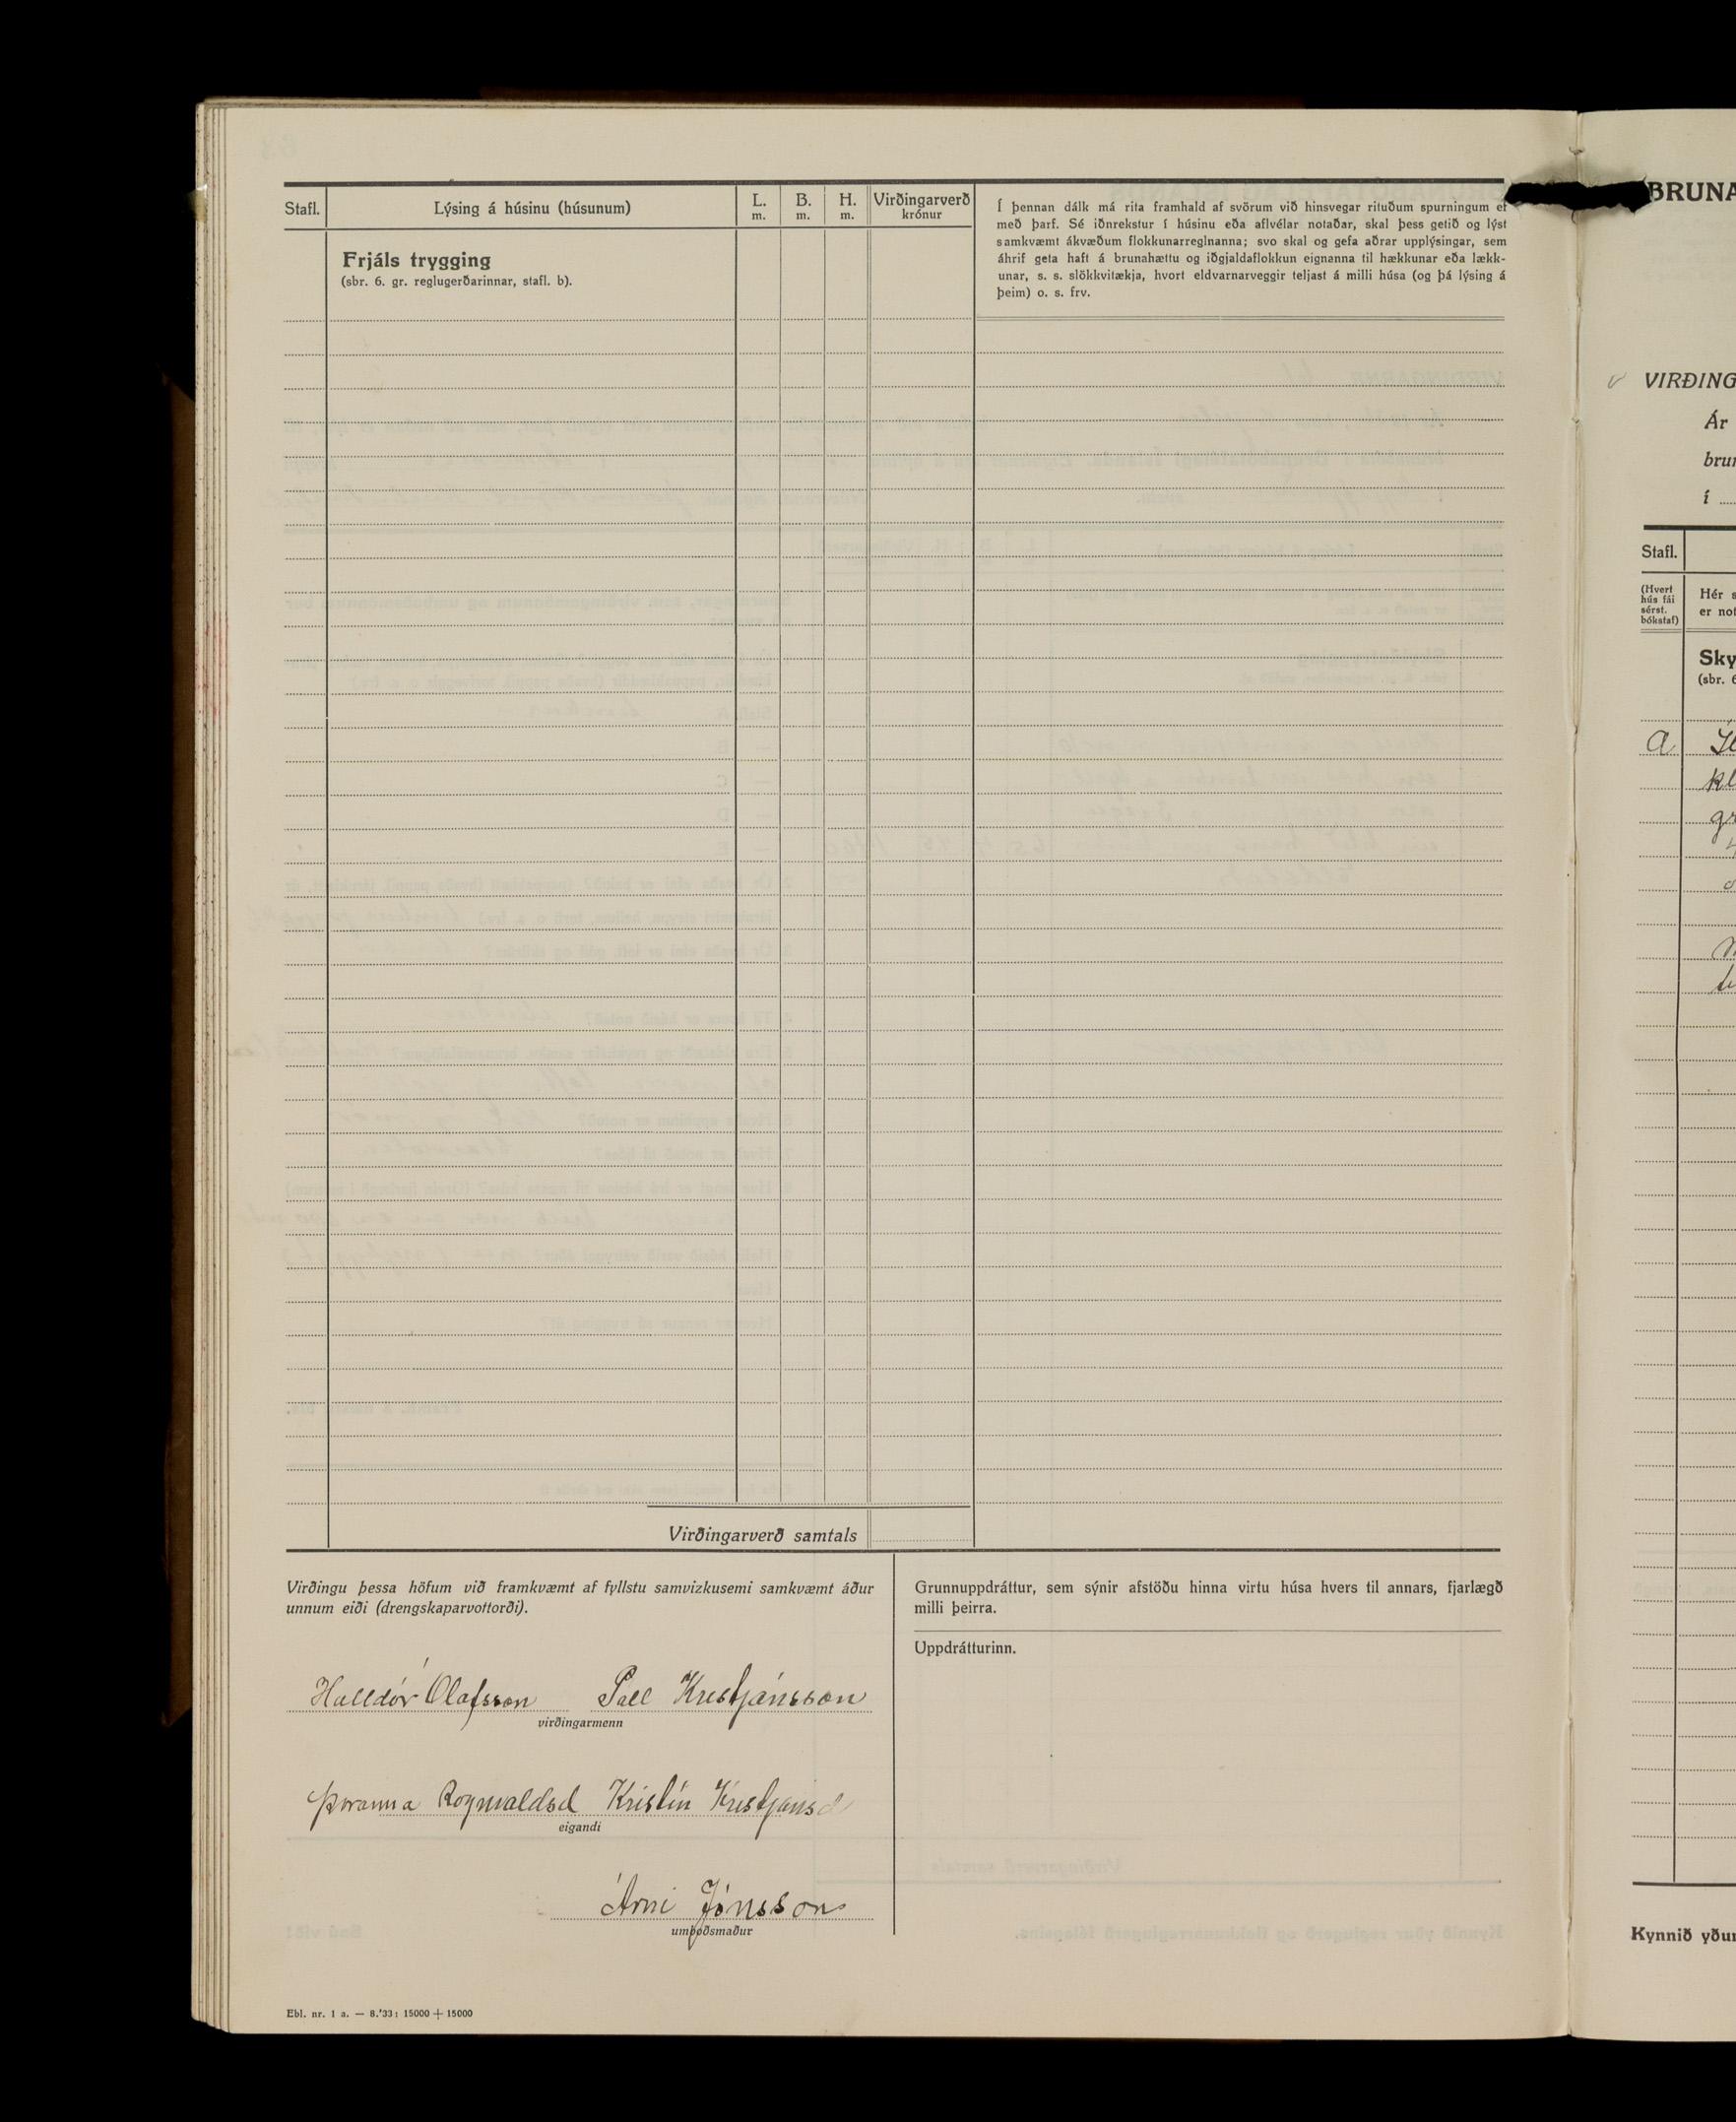 Stafl.
Lýsing á húsinu (húsunum)
L.
m.
B.
m.
H.
m.
Virðingarverð
krónur
Í þennan dálk má rita framhald af svörum við hinsvegar rituðum spurningum ef
með þarf. Sé iðnrekstur í húsinu eða aflvélar notaðar, skal þess getið og lýst
samkvæmt ákvæðum flokkunarreglnanna; svo skal og gefa aðrar upplýsingar, sem
áhrif geta haft á brunahættu og iðgjaldaflokkun eignanna til hækkunar eða lækk-
unar, s. s. slökkvitækja, hvort eldvarnarveggir teljast á milli húsa (og þá lýsing á
þeim) o. s. frv.
Frjáls trygging
(sbr. 6. gr. reglugerðarinnar, stafl. b).
Virðingarverð samtals
Virðingu þessa höfum við framkvæmt af fyllstu samvizkusemi samkvæmt áður
unnum eiði (drengskaparvottorði).
Halldór Ólafsson Páll Kristjánsson
virðingarmenn
Þóranna Rögnvaldsd Kristín Kristjánsd
eigandi
Árni Jónsson
umboðsmaður
Grunnuppdráttur, sem sýnir afstöðu hinna virtu húsa hvers til annars, fjarlægð
milli þeirra.
Uppdrátturinn.
Ebl. nr. 1 a. — 8.'33: 15000 + 15000
BRUNA
VIRÐING
Ár
brun
í
Stafl.
(Hvert
hús fái
sérst.
bókstaf)
Hér s
er not
Sky
(sbr. 6
a
kl
Kynnið yður